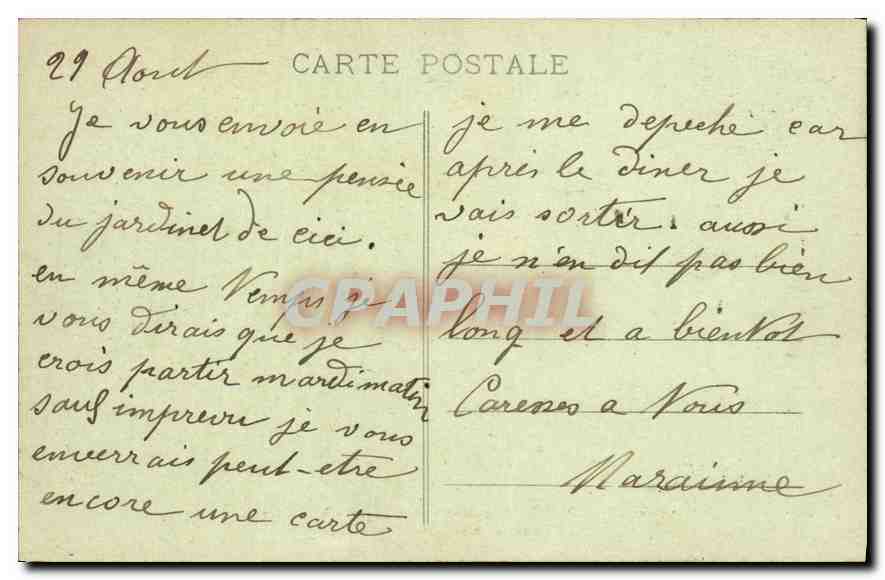 29 Aout
CARTE POSTALE
Je vous envoie en
souvenir une pensée
du jardinet de cici.
en même temps je
vous dirais que je
crois partir mardi matin
sauf imprevu je vous
enverrais peut-etre
encore une carte
je me depeche car
après le diner je
vais sortir. aussi
je n'en dit pas bien
long et a bientot
Caresses a Vous
Marainne
CPAPHIL